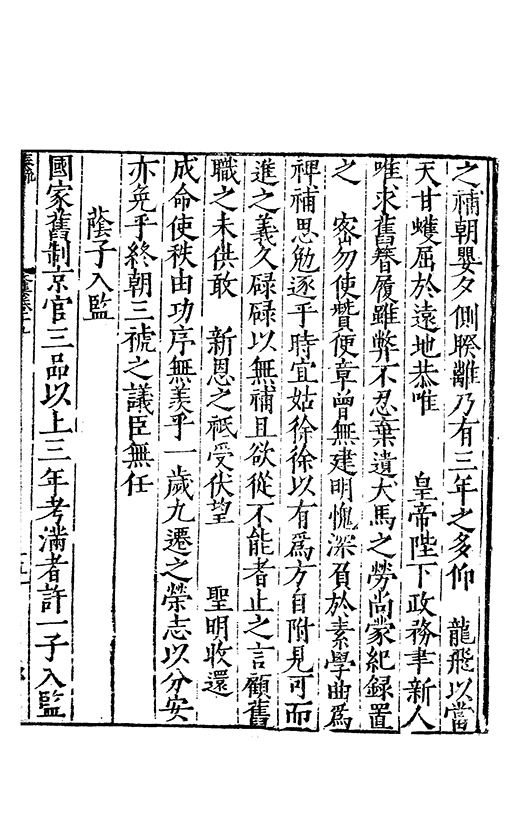 之補朝嬰夕側睽離乃有三年之多仰　龍飛以當
天甘蠖屈於遠地恭唯　皇帝陛下政務聿新人
唯求舊簪履雖弊不忍棄遺犬馬之勞尚蒙紀録置
之　密勿使贊便章曾無建明愧深負於素學曲爲
裨補思勉逐乎時宜姑徐徐以有爲方自附見可而
進之義久碌碌以無補且欲從不能者止之言顧舊
職之未供敢　新恩之祗受伏望　聖明收還
成命使秩由功序無羡乎一歲九遷之榮志以分安
亦免乎終朝三褫之議臣無任
蔭子入監
國家舊制京官三品以上三年考滿者許一子入監